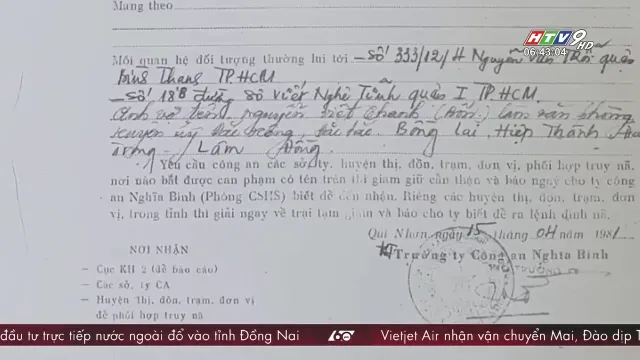 Mang theo
HTV9 HD
06:43:04
Mối quan hệ đối tượng thường lui tới - Số 333/12/H Nguyễn Văn Thổi quận
Bình Thạnh TP.HCM
- Số 188 đường Sô viết Nghệ Tĩnh quận I TP.HCM
Anh vợ tên Nguyễn Việt Thanh làm văn phòng
huyện ủy Bồng Lai, Hiệp Thạnh
Lâm Đồng
Yêu cầu công an các sở, ty, huyện thị, đồn, trạm, đơn vị, phối hợp truy nã,
nơi nào bắt được can phạm có tên trên thì giam giữ cẩn thận và báo ngay cho ty công
an Nghĩa Bình (Phòng CSHS) biết để đến nhận. Riêng các huyện thị, đồn, trạm, đơn
vị, trong tỉnh thì giải ngay về trại tạm giam và báo cho ty biết để ra lệnh đình nã.
Qui Nhơn ngày 15 tháng 04 năm 1981
KT Trưởng ty Công an Nghĩa Bình
NƠI NHẬN
— Cục KH 2 (để báo cáo)
— Các sở, ty CA
— Huyện thị, đồn, trạm, đơn vị
để phối hợp truy nã
đầu tư trực tiếp nước ngoài đổ vào tỉnh Đồng Nai
60
Vietjet Air nhận vận chuyển Mai, Đào dịp T